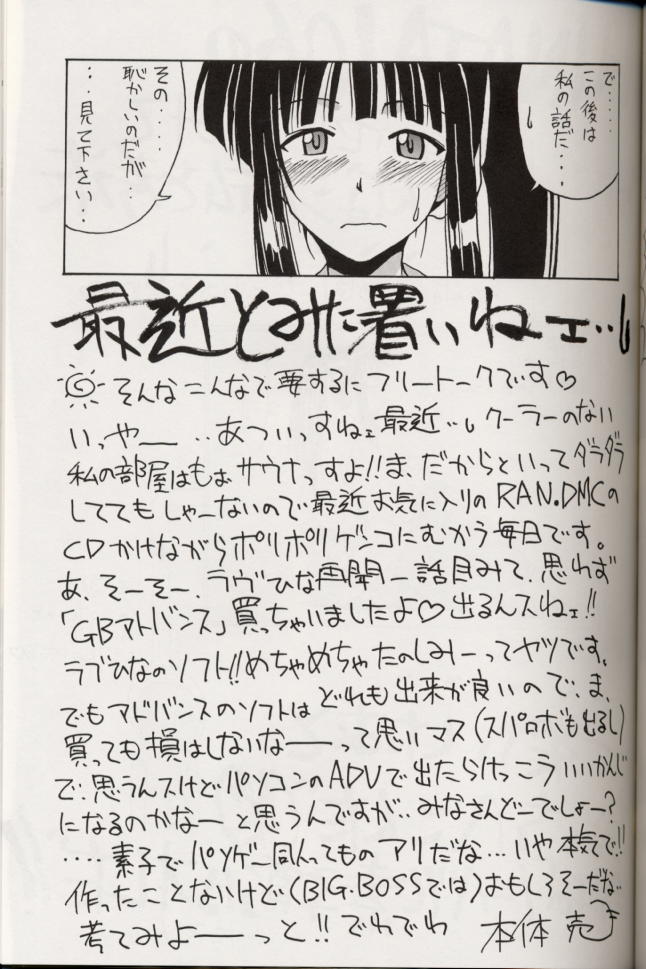 で・・・・・
この後は
私の話だ・・・
その・・・・
恥かしいのだが・・
・・・見て下さい・・
最近とみに暑いねェ・・
そんなこんなで要するにフリートークです♡
いっやー ‥あついっすねェ最近‥クーラーのない
私の部屋はもぉサウナっすよ!!ま、だからといってダラダラ
しててもしゃーないので最近お気に入りのRAN.DMCの
CDかけながらポリポリゲンコにむかう毎日です。
あ、そーそー、ラヴひな再開一話目みて、思わず
「GBアドバンス」買っちゃいましたよ♡出るんスねェ!!
ラブひなのソフト!!めちゃめちゃたのしみーってヤツです。
でもアドバンスのソフトはどれも出来が良いので、ま、
買っても損はしないなーって思いマス(スパロボも出るし)
で、思うんスけどパソコンのADVで出たらけっこういいかんじ
になるのかなーと思うんですが‥みなさんどーでしょー?
‥‥素子でパソゲー同人ってものアリだな…いや本気で!!
作ったことないけど(BIG.BOSSでは)おもしろそーだな
考てみよーっと!!でわでわ 本体 売